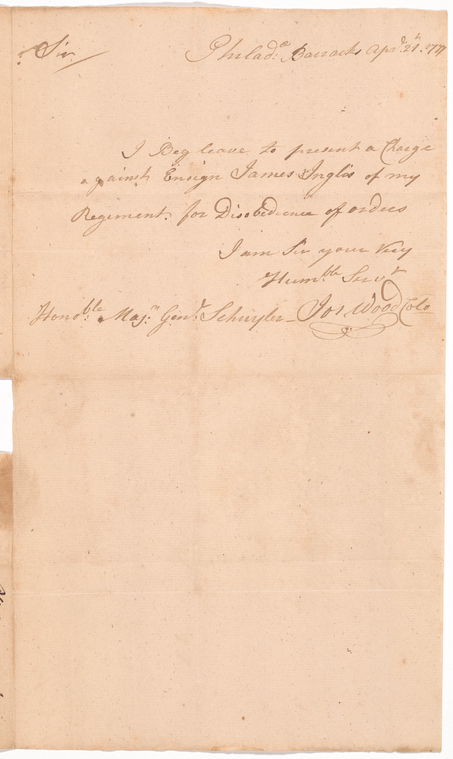 Sir
Philad.a Barracks Apr.l 21.t 1777
I Beg leave to present a Charge
against Ensign James Inglis of my
Regiment for Disobedience of orders
I am Sir your Very
Humble Serv.t
Jos Wood Colo
Honoble. Maj.r Gen.l Schuyler